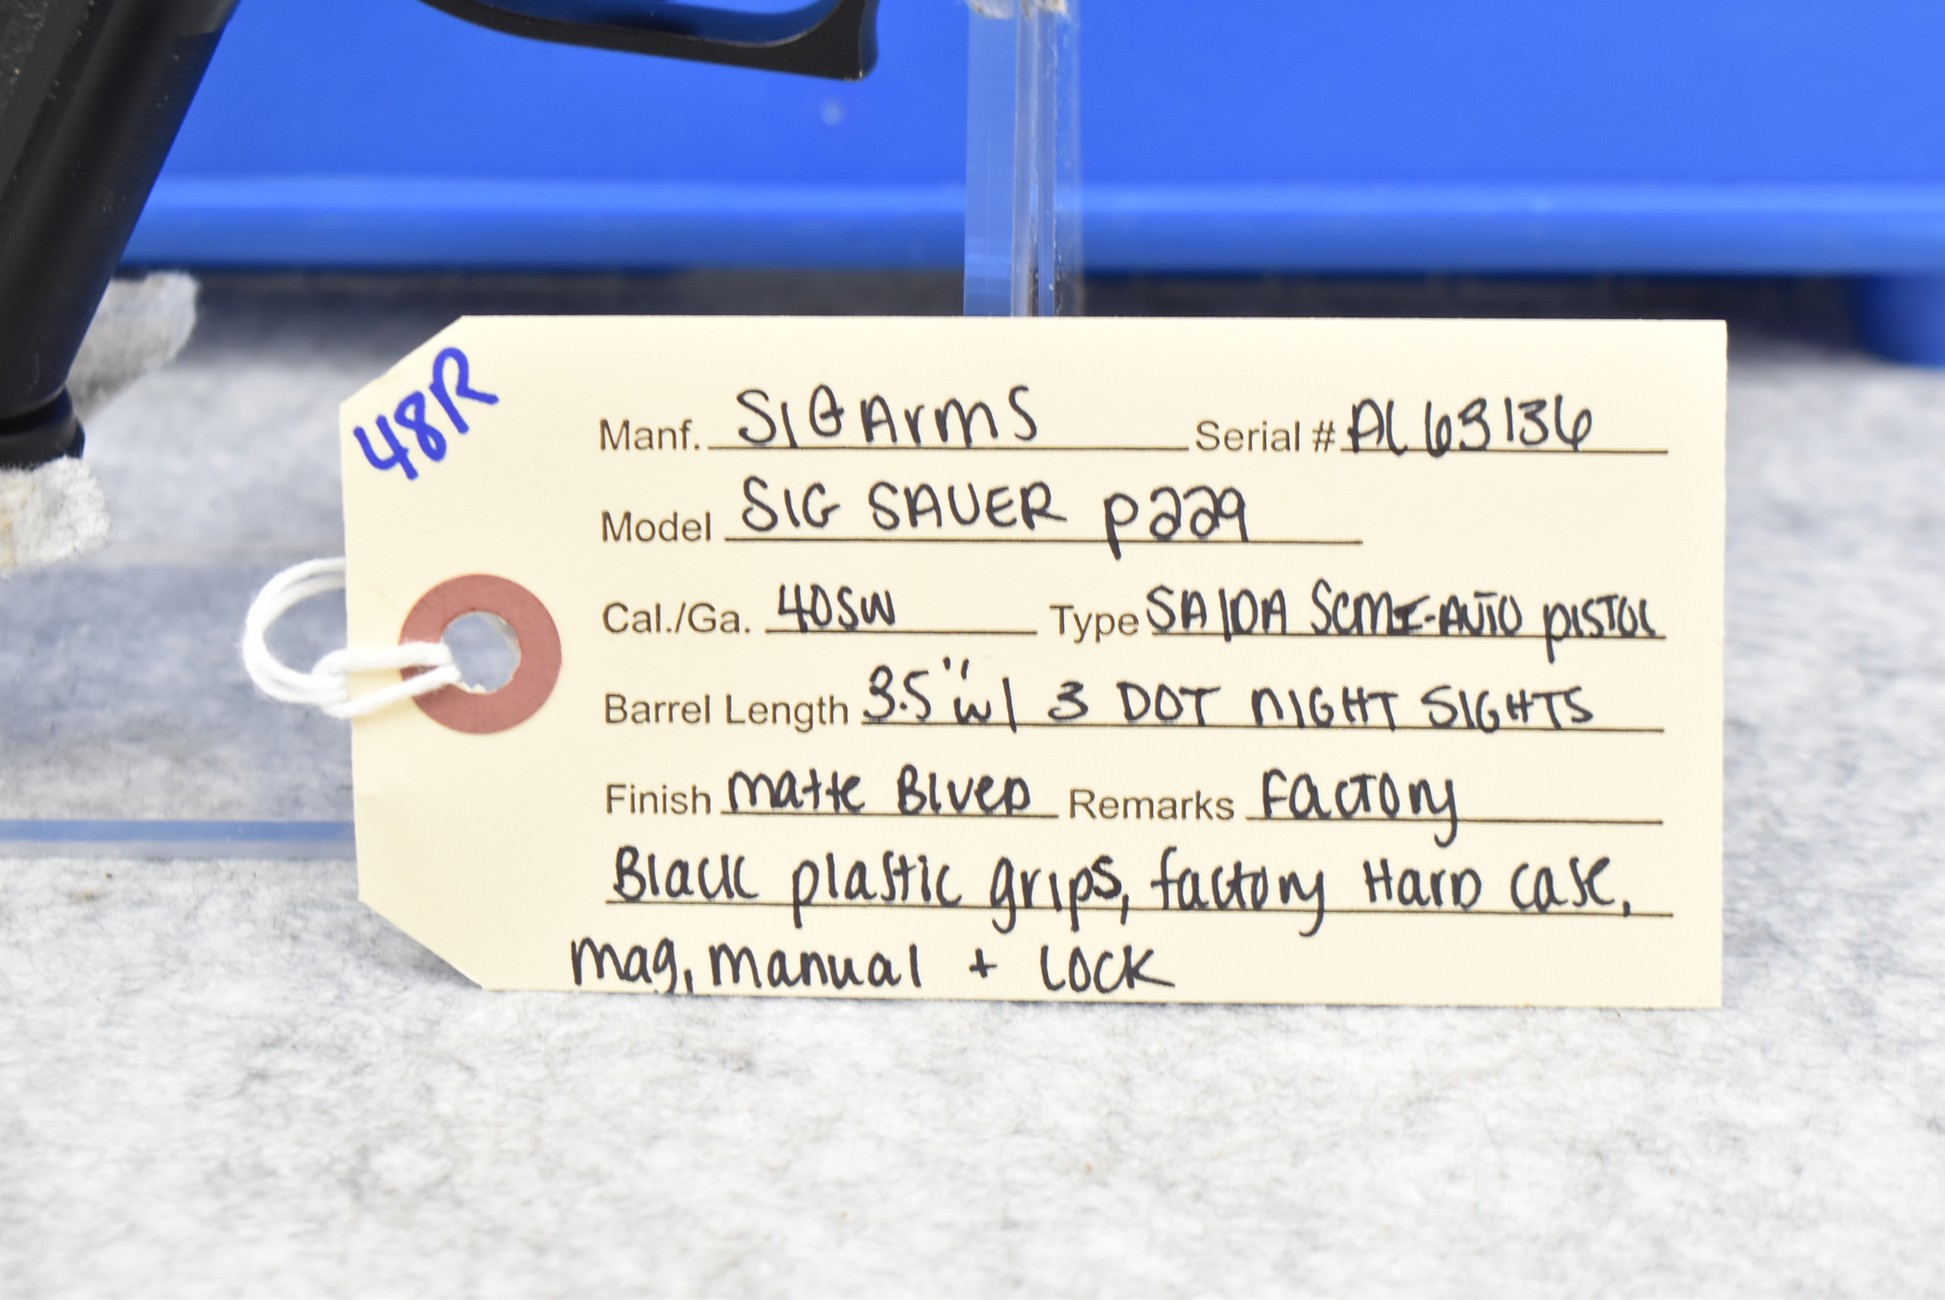 48R
Manf. SIGArms Serial # AL63136
Model SIG SAUER p229
Cal./Ga. 40SW Type SA/DA Semi-Auto pistol
Barrel Length 3.5" w/ 3 DOT NIGHT SIGHTS
Finish matte Blued Remarks Factory
Black plastic grips, factory Hard case,
mag, manual + LOCK